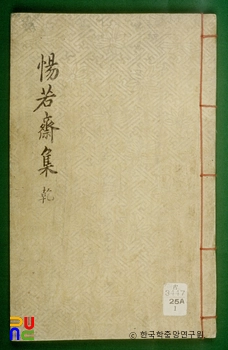 惕若齋集 乾
25A
1
© 한국학중앙연구원